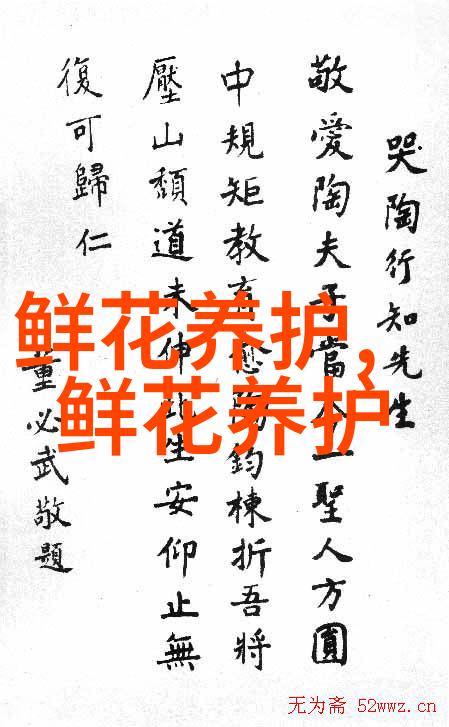 哭陶行知先生
敬愛陶夫子當今一聖人方圓
中規矩教育愈陶鈞棟折吾將
壓山頹道未伸此生安仰止無
復可歸仁
董必武敬題
鲜花养护,
鲜花养护
无为斋 52wwz.cn